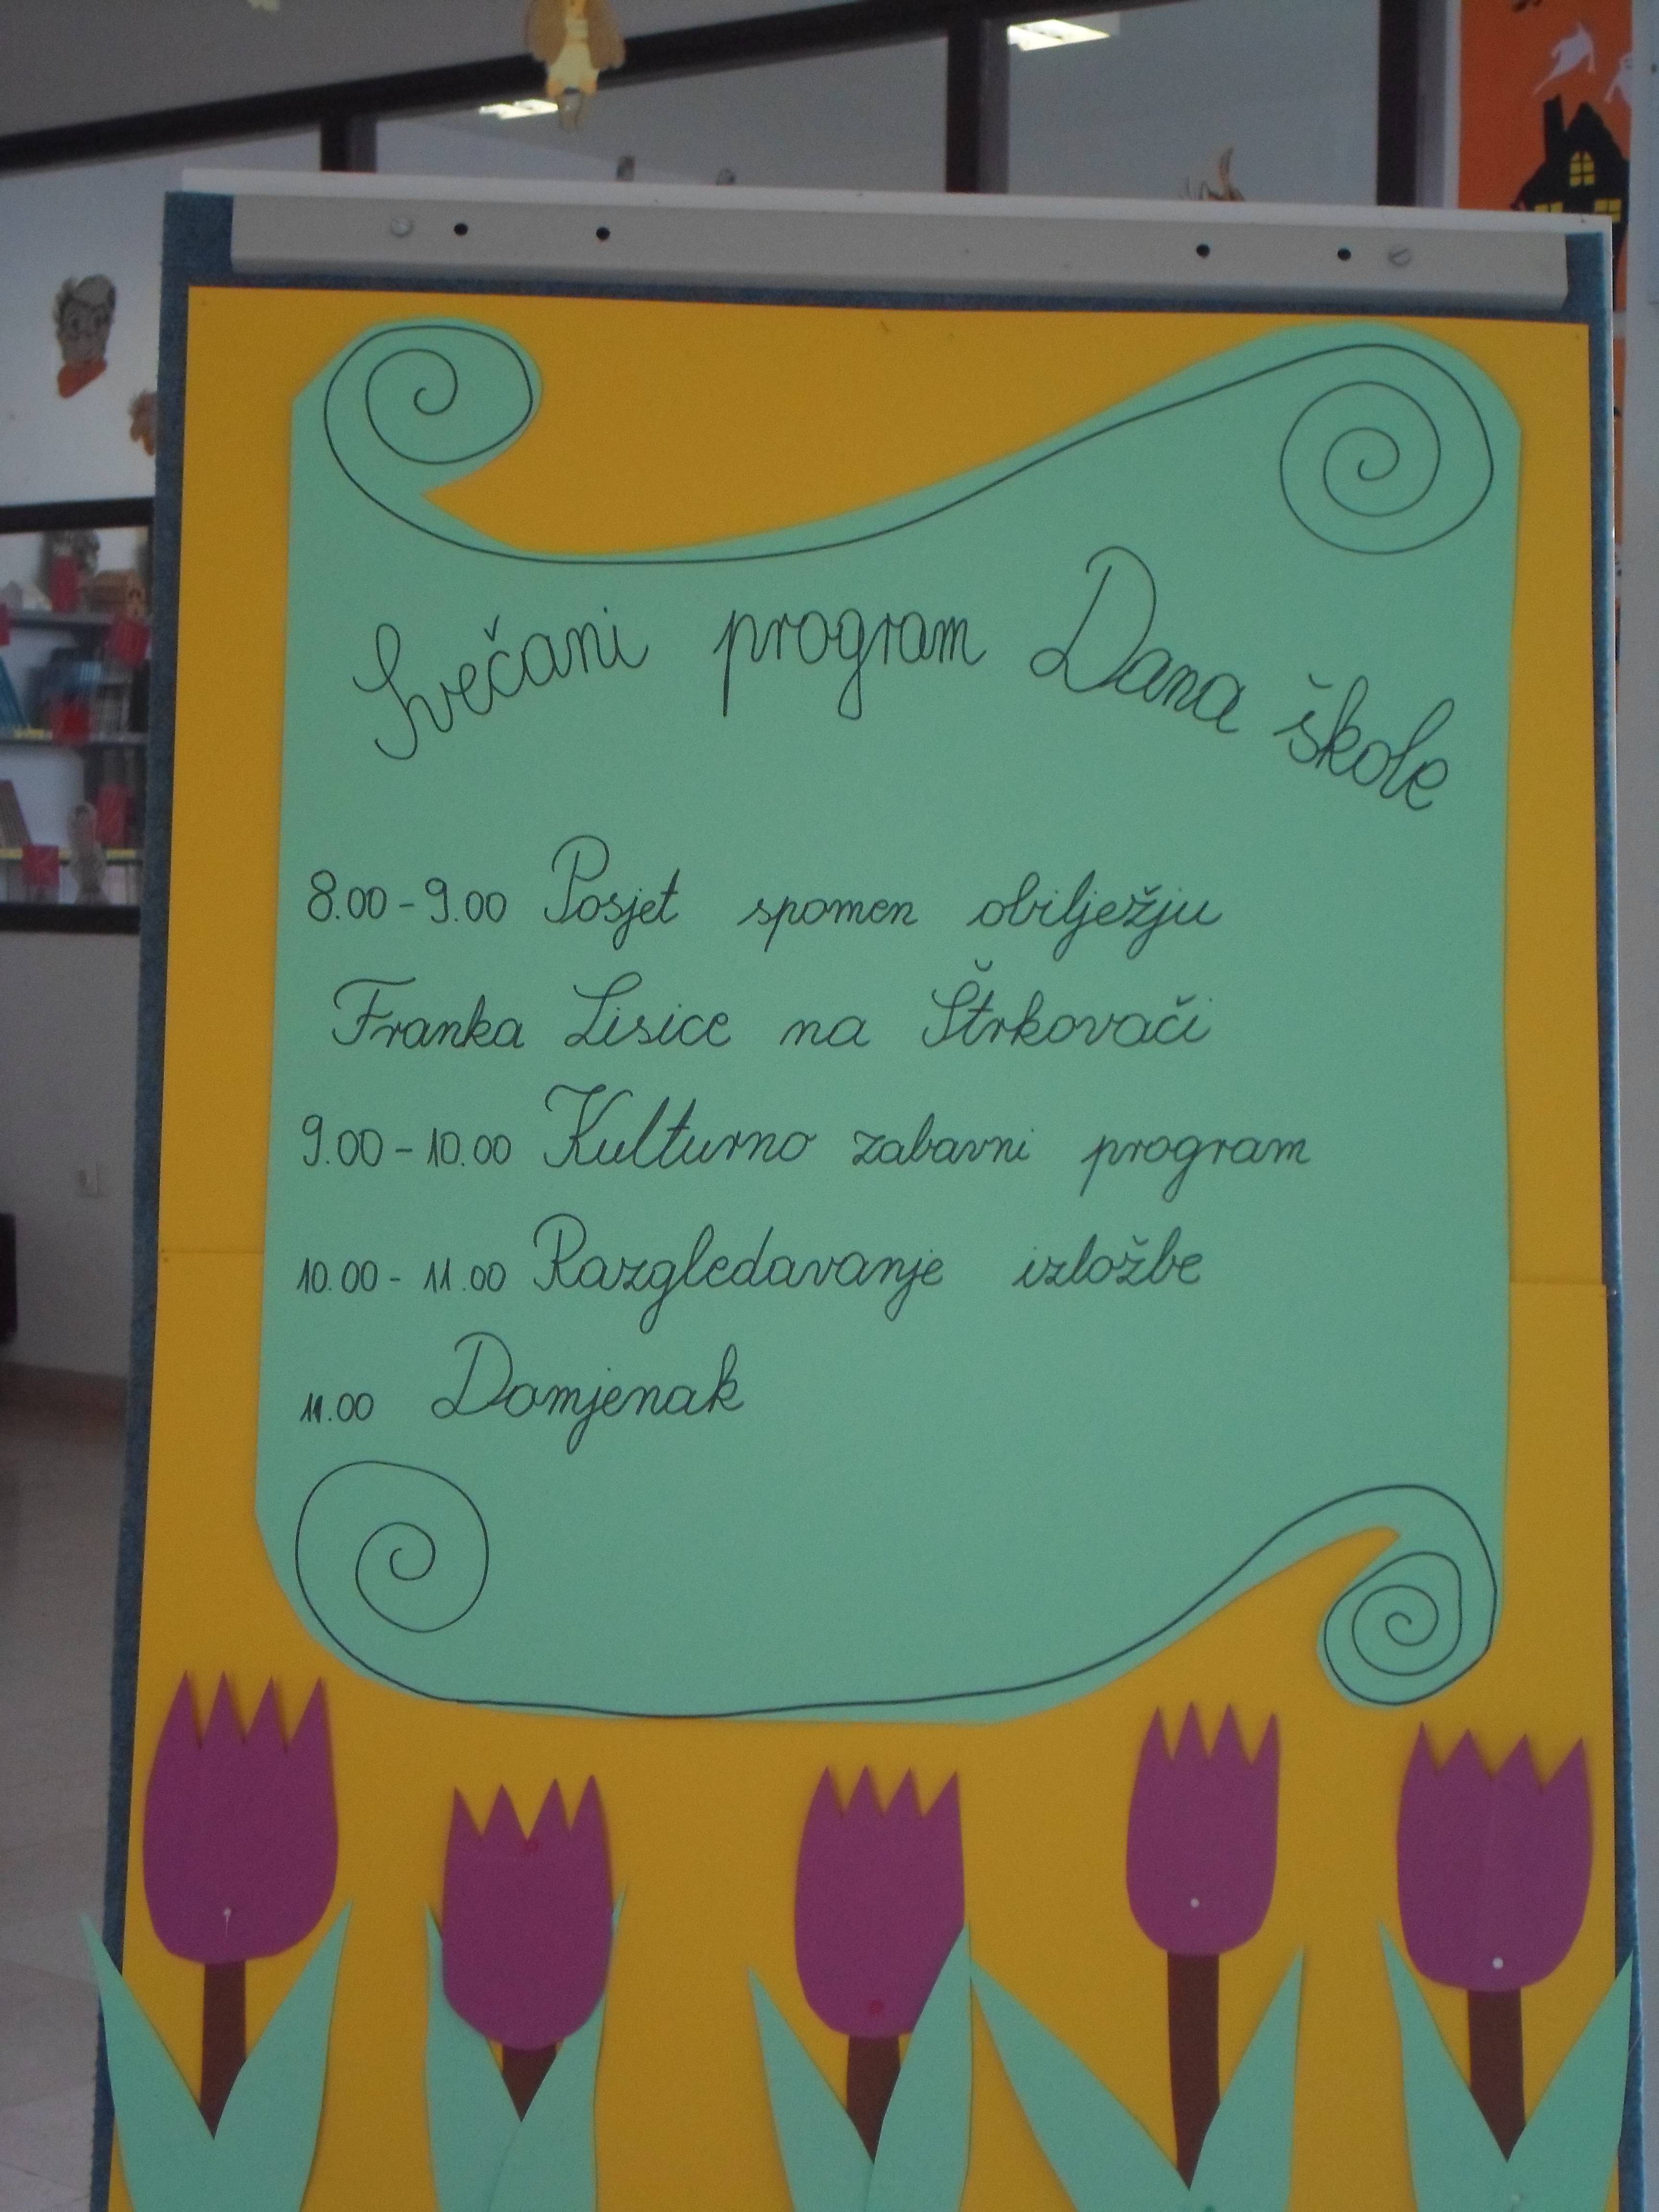 Svečani program Dana škole
8.00 - 9.00 Posjet spomen obilježju
Franka Lisice na Štrkovači
9.00 - 10.00 Kulturno zabavni program
10.00 - 11.00 Razgledavanje izložbe
11.00 Domjenak